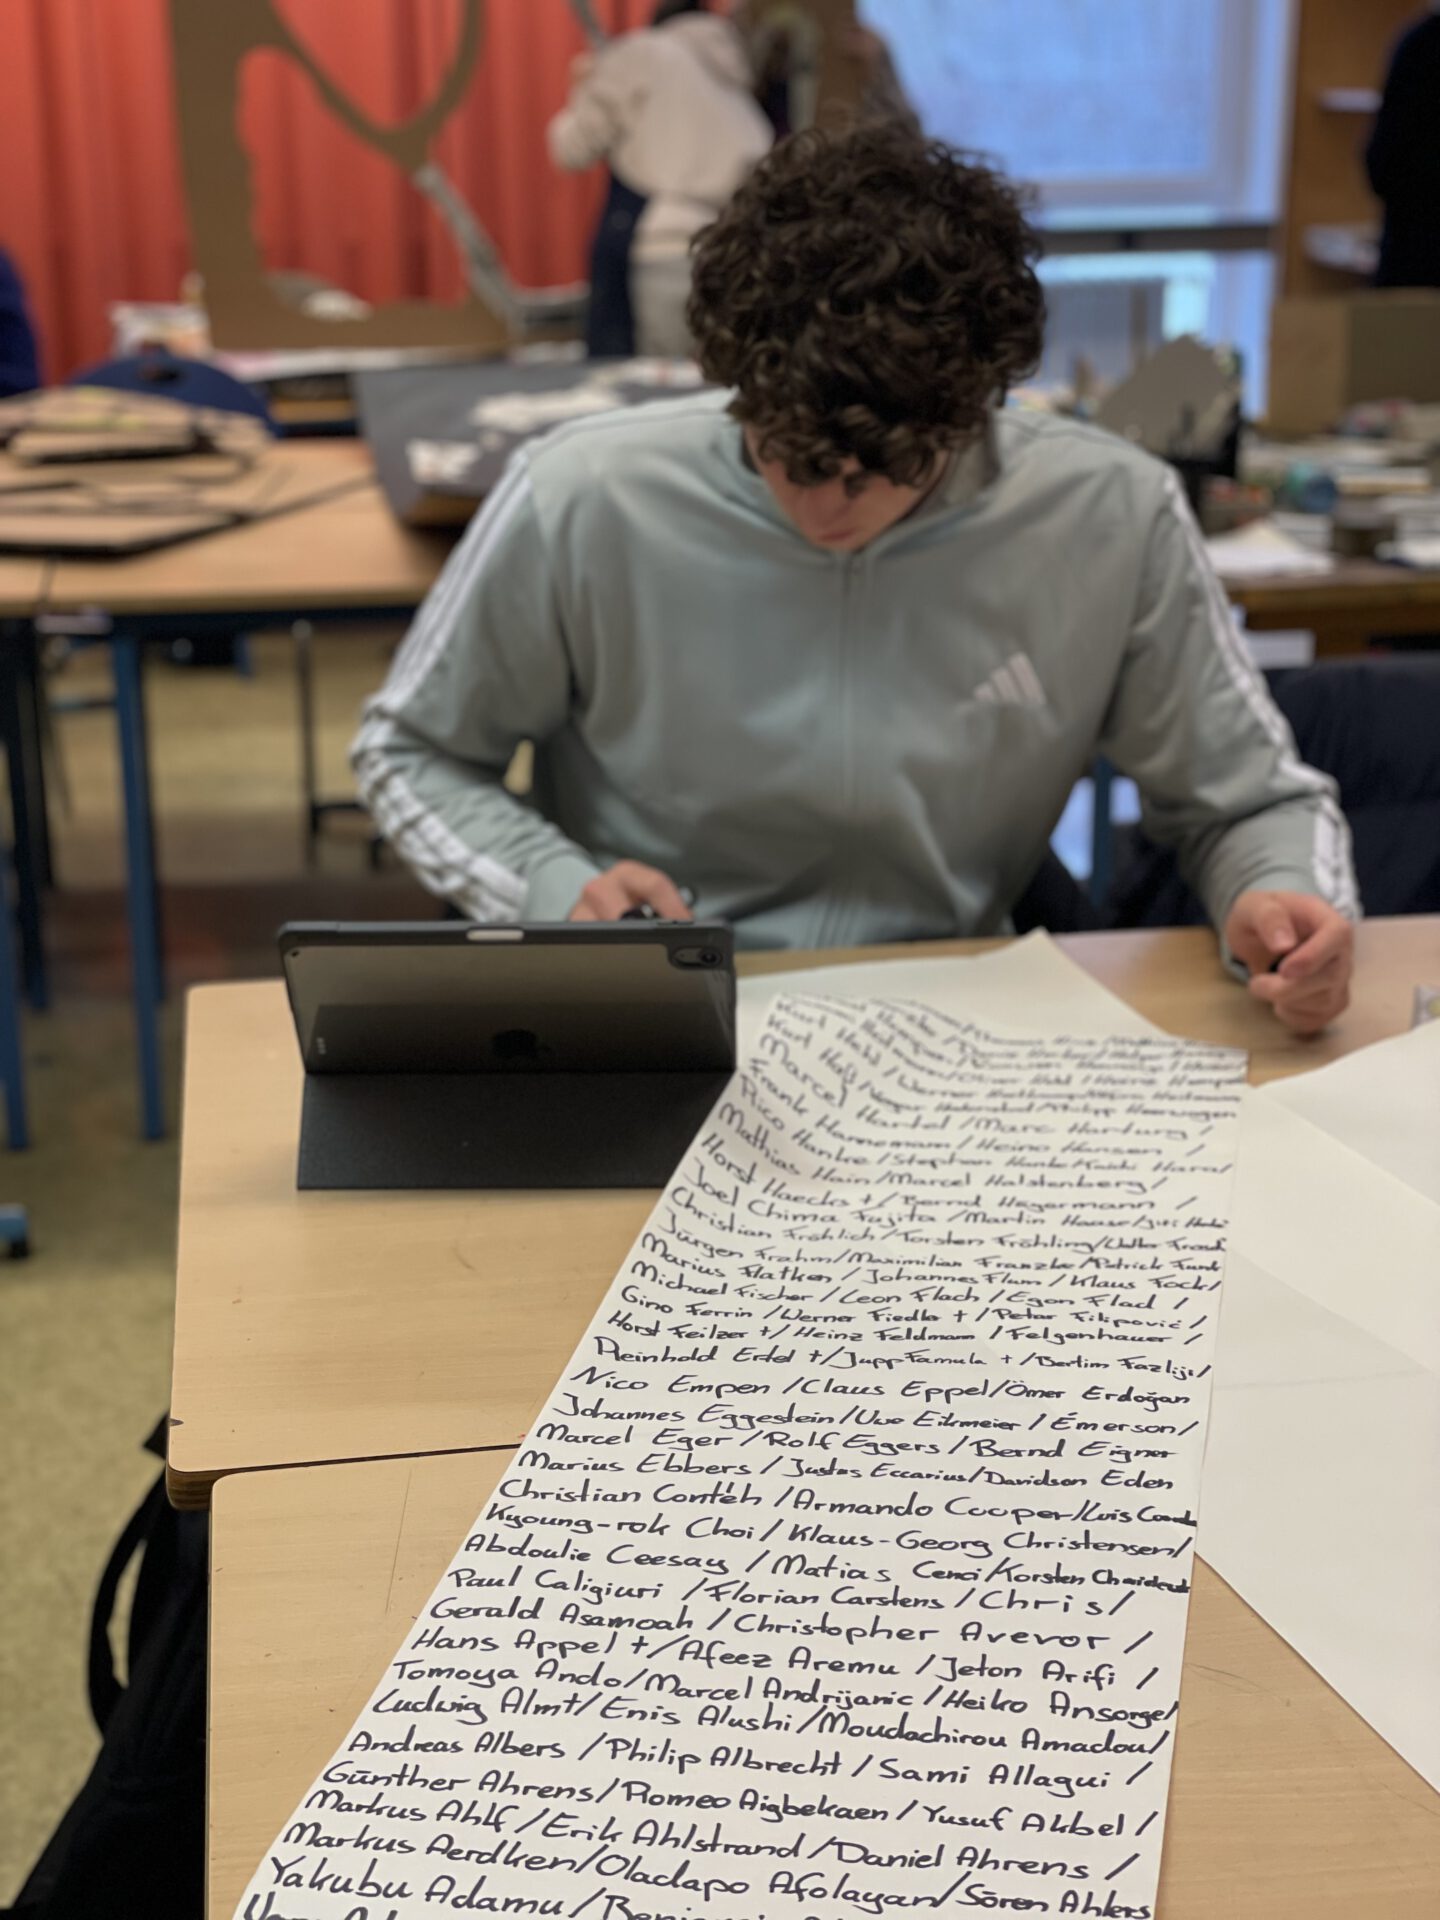 Kurt Hehl / Werner
Kurt Haß /
Marcel Hartel / Marc Hartung /
Frank Hannemann / Heino Hansen /
Rico Hanke / Stephan Hanke /
Mathias Hain / Marcel Halstenberg /
Horst Haecks + / Bernd Hegermann /
Joel Chima Fujita / Martin Haase /
Christian Fröhlich / Torsten Fröhling /
Jürgen Frahm / Maximilian Franzke / Patrick Funk
Marius Flatken / Johannes Flum / Klaus Fock /
Michael Fischer / Leon Flach / Egon Flad /
Gino Ferrin / Werner Fiedler + / Petar Filipović /
Horst Feilzer + / Heinz Feldmann / Felgenhauer /
Reinhold Ertel + / Jupp Famula + / Bertim Fazliji /
Nico Empen / Claus Eppel / Ömer Erdoğan
Johannes Eggestein / Uwe Eikmeier / Émerson /
Marcel Eger / Rolf Eggers / Bernd Eigner
Marius Ebbers / Justus Eccarius / Davidson Eden
Christian Conteh / Armando Cooper / Luis
Kyoung-rok Choi / Klaus-Georg Christensen /
Abdoulie Ceesay / Matias Cenci /
Paul Caligiuri / Florian Carstens / Chris /
Gerald Asamoah / Christopher Avevor /
Hans Appel + / Afeez Aremu / Jeton Arifi /
Tomoya Ando / Marcel Andrijanic / Heiko Ansorge /
Ludwig Alm + / Enis Alushi / Moudachirou Amadou /
Andreas Albers / Philip Albrecht / Sami Allagui /
Günther Ahrens / Romeo Aigbekaen / Yusuf Akbel /
Markus Ahlf / Erik Ahlstrand / Daniel Ahrens /
Markus Aerdken / Oladapo Afolayan / Sören Ahlers
Yakubu Adamu /